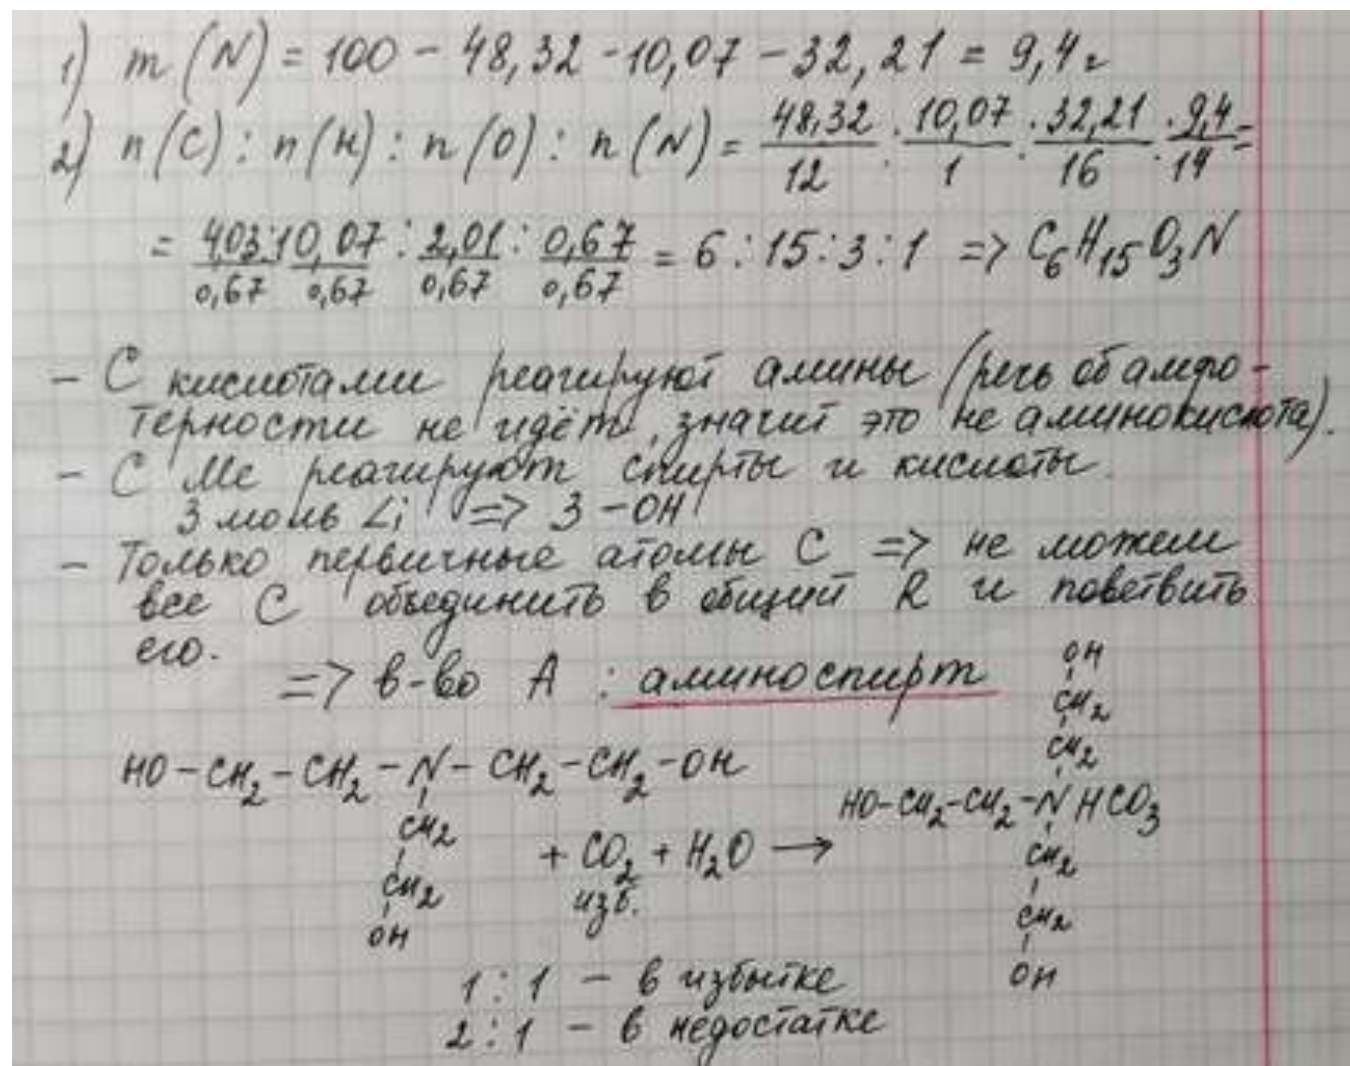 1) m (N) = 100 - 48,32 - 10,07 - 32,21 = 9,4 г
2) n(C) : n(H) : n(O) : n(N) = 48,32/12 : 10,07/1 : 32,21/16 : 9,4/14 =
= 4,03/0,67 : 10,07/0,67 : 2,01/0,67 : 0,67/0,67 = 6 : 15 : 3 : 1 => C6H15O3N
- С кислотами реагируют амины (речь об амфо-
терности не идёт, значит это не аминокислота).
- С Ме реагируют спирты и кислоты.
3 моль Li => 3 -OH
- Только первичные атомы С => не можем
все С объединить в общий R и поветвить
его.
=> в-во А : аминоспирт
HO-CH2-CH2-N-CH2-CH2-OH
CH2
CH2
OH
+ CO2 + H2O →
изб.
OH
CH2
CH2
HO-CH2-CH2-NHCO3
CH2
CH2
OH
1 : 1 - в избытке
2 : 1 - в недостатке